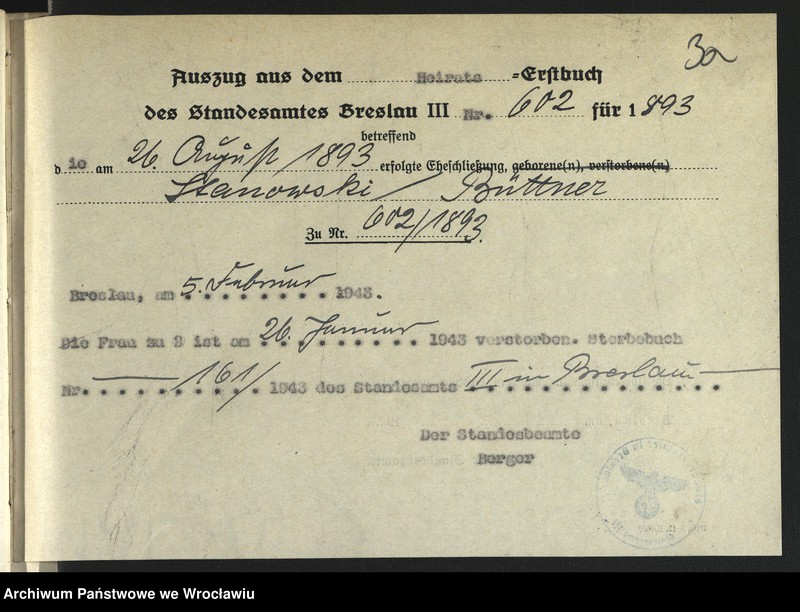 3a
Auszug aus dem Heirats -Erstbuch
des Standesamtes Breslau III Nr. 602 für 1893
betreffend
die am 26. August 1893 erfolgte Eheschließung, geborene(n), verstorbene(n)
Stanowski / Büttner
Zu Nr. 602/1893.
Breslau, am 5. Februar 1943.
Die Frau zu 2 ist am 26. Januar 1943 verstorben. Sterbebuch
Nr. 161/ 1943 des Standesamts III in Breslau
Der Standesbeamte
Berger
Archiwum Państwowe we Wrocławiu